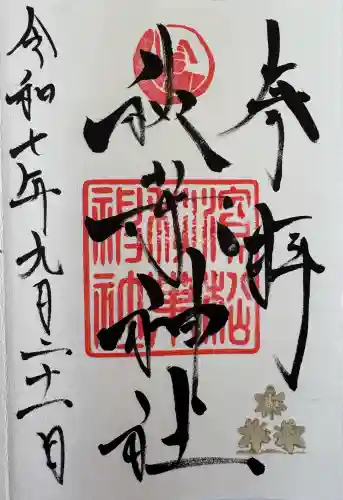 奉拝
濱松
秋葉
神社
秋葉神社
令和七年九月二十一日